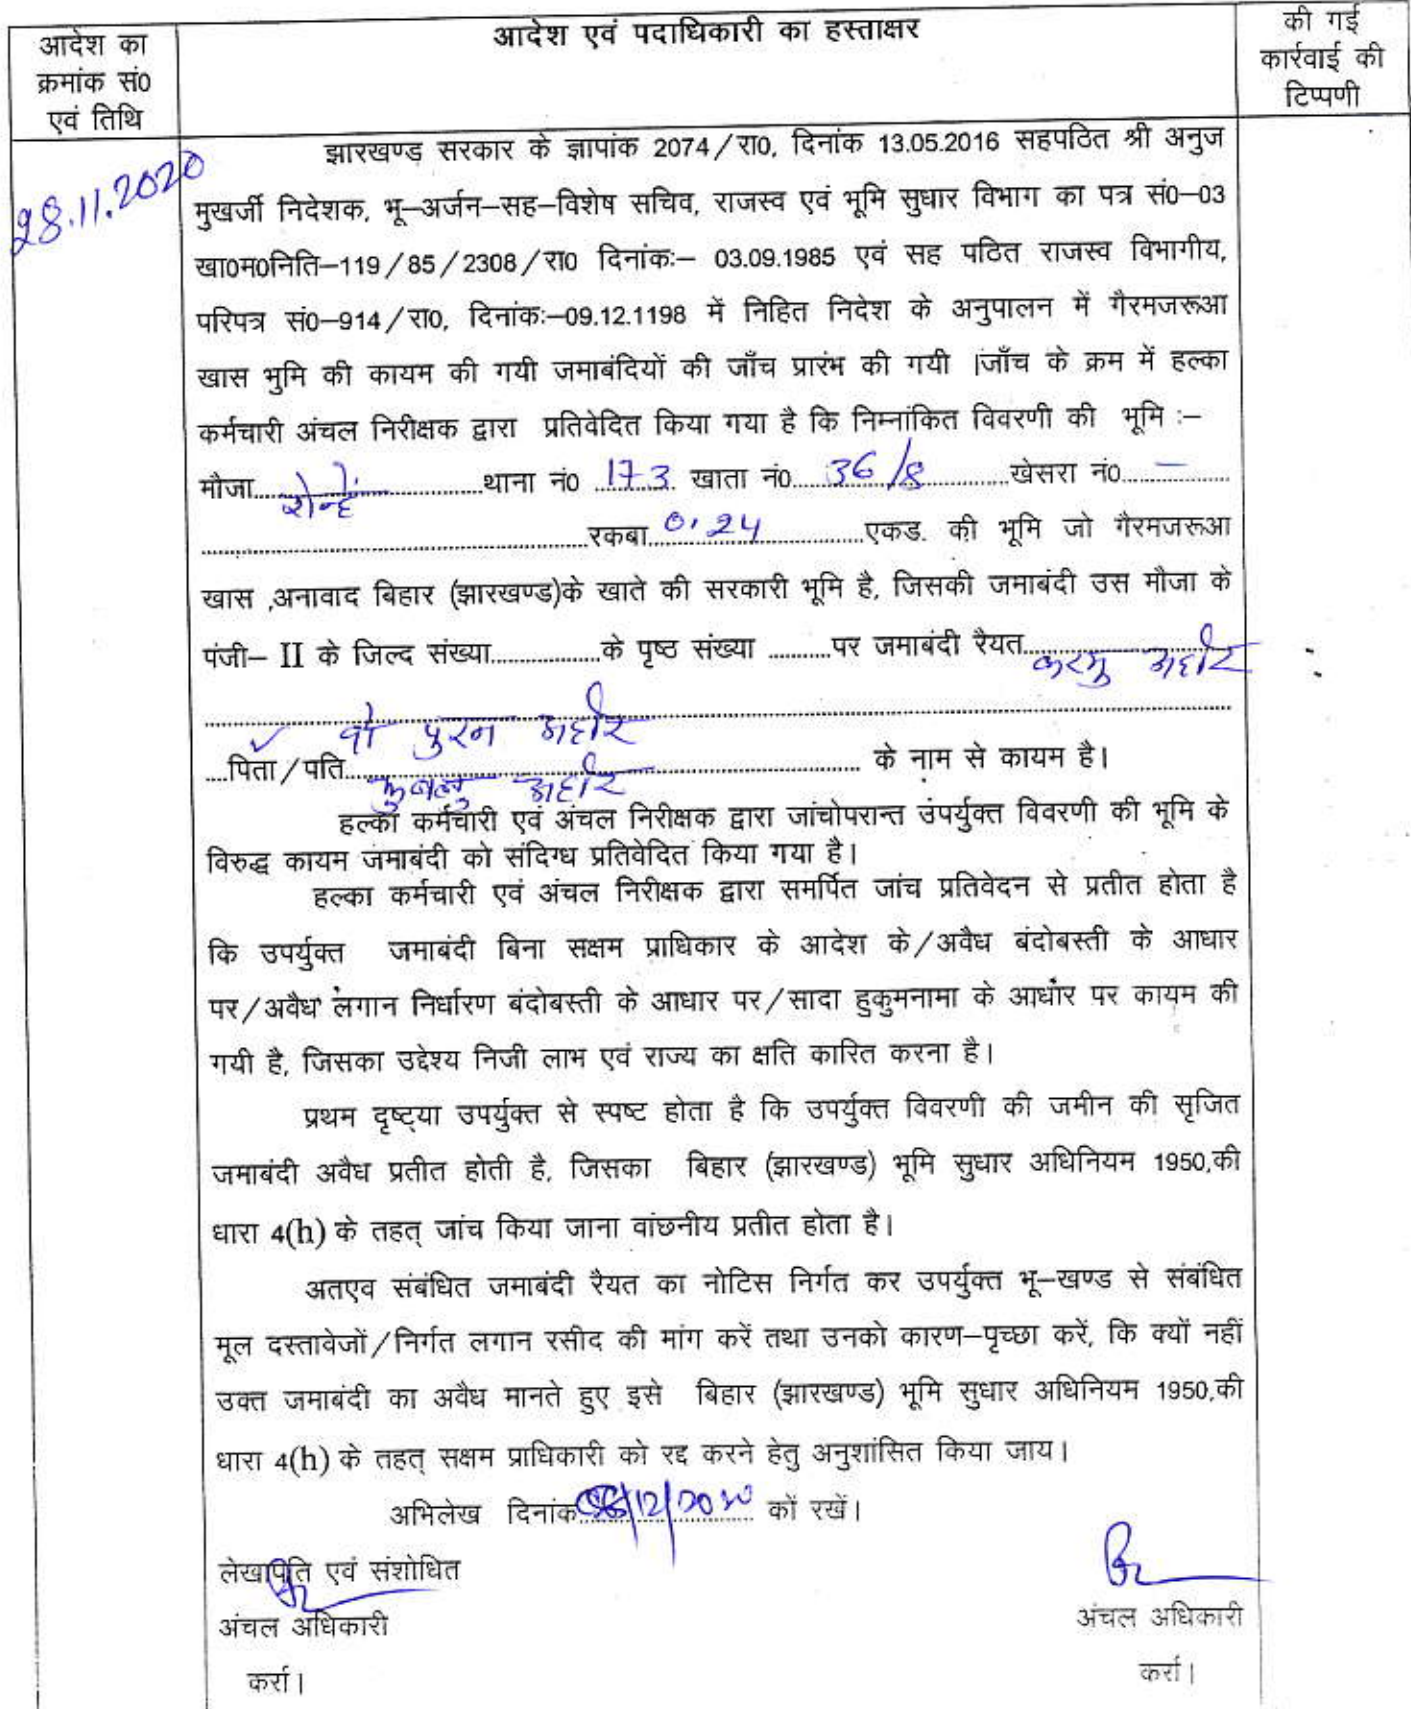 आदेश का
क्रमांक सं0
एवं तिथि
आदेश एवं पदाधिकारी का हस्ताक्षर
की गई
कार्रवाई की
टिप्पणी
28.11.2020
झारखण्ड सरकार के ज्ञापांक 2074/रा0, दिनांक 13.05.2016 सहपठित श्री अनुज
मुखर्जी निदेशक, भू–अर्जन–सह–विशेष सचिव, राजस्व एवं भूमि सुधार विभाग का पत्र सं0–03
खा0म0निति–119/85/2308/रा0 दिनांकः– 03.09.1985 एवं सह पठित राजस्व विभागीय,
परिपत्र सं0–914/रा0, दिनांकः–09.12.1198 में निहित निदेश के अनुपालन में गैरमजरूआ
खास भुमि की कायम की गयी जमाबंदियों की जाँच प्रारंभ की गयी ।जाँच के क्रम में हल्का
कर्मचारी अंचल निरीक्षक द्वारा प्रतिवेदित किया गया है कि निम्नांकित विवरणी की भूमि :–
मौजा.......................थाना नं0 173 खाता नं0 36/8 खेसरा नं0 –
रकबा 0.24 एकड. की भूमि जो गैरमजरूआ
खास ,अनावाद बिहार (झारखण्ड)के खाते की सरकारी भूमि है, जिसकी जमाबंदी उस मौजा के
पंजी– II के जिल्द संख्या..................के पृष्ठ संख्या ..........पर जमाबंदी रैयत करमु अहीर
वो पुरन अहीर
....पिता/पति अहीर के नाम से कायम है।
हल्का कर्मचारी एवं अंचल निरीक्षक द्वारा जांचोपरान्त उंपर्युक्त विवरणी की भूमि के
विरुद्ध कायम जमाबंदी को संदिग्ध प्रतिवेदित किया गया है।
हल्का कर्मचारी एवं अंचल निरीक्षक द्वारा समर्पित जांच प्रतिवेदन से प्रतीत होता है
कि उपर्युक्त जमाबंदी बिना सक्षम प्राधिकार के आदेश के/अवैध बंदोबस्ती के आधार
पर/अवैध लगान निर्धारण बंदोबस्ती के आधार पर/सादा हुकुमनामा के आधार पर कायम की
गयी है, जिसका उद्देश्य निजी लाभ एवं राज्य का क्षति कारित करना है।
प्रथम दृष्ट्या उपर्युक्त से स्पष्ट होता है कि उपर्युक्त विवरणी की जमीन की सृजित
जमाबंदी अवैध प्रतीत होती है, जिसका बिहार (झारखण्ड) भूमि सुधार अधिनियम 1950,की
धारा 4(h) के तहत् जांच किया जाना वांछनीय प्रतीत होता है।
अतएव संबंधित जमाबंदी रैयत का नोटिस निर्गत कर उपर्युक्त भू–खण्ड से संबंधित
मूल दस्तावेजों/निर्गत लगान रसीद की मांग करें तथा उनको कारण–पृच्छा करें, कि क्यों नहीं
उक्त जमाबंदी का अवैध मानते हुए इसे बिहार (झारखण्ड) भूमि सुधार अधिनियम 1950,की
धारा 4(h) के तहत् सक्षम प्राधिकारी को रद्द करने हेतु अनुशांसित किया जाय।
अभिलेख दिनांक /12/2020 कों रखें।
लेखापित एवं संशोधित
अंचल अधिकारी
कर्रा।
अंचल अधिकारी
कर्रा।